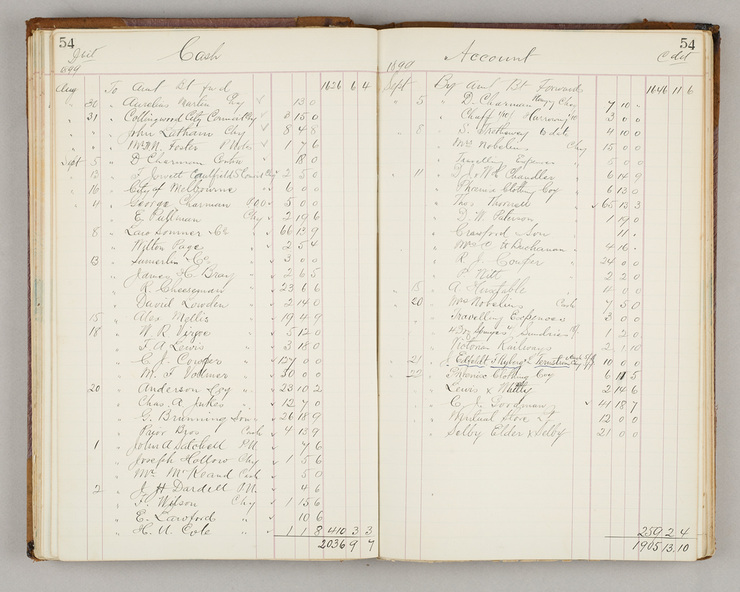 54
Cash
1899
Aug To Amt Bt fwd 1626 6 4
30 Aurelius Chy 13 0
31 Collingwood City Chy 3 15 0
John Latham Chy 8 4 8
Foster 1 7 6
Sept 5 D Charman 18 0
13 Caulfield 2 5 0
16 City of Melbourne 6 0 0
4 George Charman 5 0 0
E. Pullman Chy 2 19 6
8 Law Somner & Co 66 13 9
Milton Page 2 5 4
13 & Co 3 0 0
James H. Bray 2 6 5
R. Cheeseman 23 6 6
David Lowden 2 14 0
15 Alex Mellis 19 4 9
18 W. R. Virgoe 5 12 0
F. A. Lewis 3 18 0
C. J. Cowper 127 0 0
M. F. 30 0 0
20 Anderson & Coy 23 10 2
Chas. A. Jukes 12 7 0
G. Brunning & Sons 26 18 9
Prior Bros Cash 4 13 9
1 John A Satchell P.N. 7 6
Joseph Hollow Chy 1 5 6
Mr Cash 5 0
2 J. H. Dardell P.N. 4 6
F. Wilson Chy 1 15 6
E. Lawford 10 6
H. U. Cole 1 1 8 410 3 3
2036 9 7
54
Account
1899
Sept By Amt Bt Forward 1646 11 6
5 D. Charman Chy 7 10
Chaff 40/ Harrowing 3 0 0
8 S. 4 10 0
Mrs Nobelius Chy 15 0 0
Travelling Expenses 5 0 0
11 Chandler 6 14 9
Phoenix Clothing Coy 6 13 0
Thos 65 13 3
J. W. Paterson 1 19 0
Crawford & Son 11
Buchanan 4 16
R. J. Cowper 24 0 0
Witt 2 2 0
15 A Huxtable 4 0 0
20 Mrs Nobelius Cash 7 5 0
Travelling Expenses 3 0 0
Sundries 1 2 0
Victorian Railways 2 1 10
21 10 0 0
22 Phoenix Clothing Coy 6 11 5
Lewis & 2 14 6
C. J. Goodman 41 18 7
Mutual Store Ld 12 0 0
Selby Elder & Selby 21 0 0
259 2 4
1905 13 10